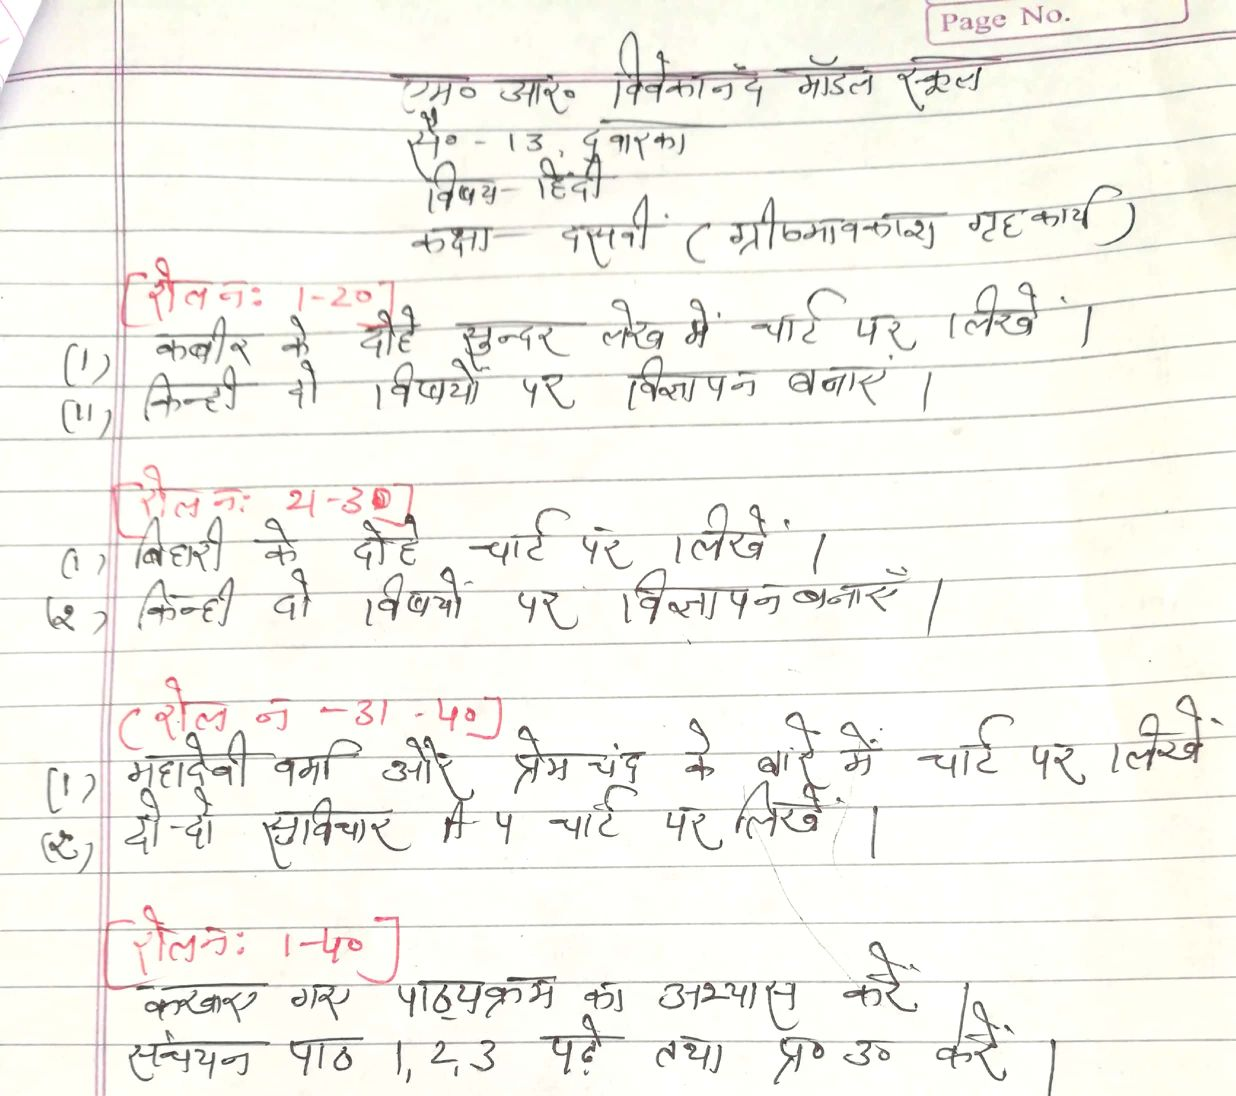 Page No.
एम० आर० विवेकानंद मॉडल स्कूल
सै० - 13, द्वारका
विषय - हिंदी
कक्षा - दसवीं (ग्रीष्मावकाश गृहकार्य)
[रोल नः 1-20]
(1) कबीर के दोहे सुन्दर लेख में चार्ट पर लिखें ।
(11) किन्ही दो विषयों पर विज्ञापन बनाएं ।
[रोल नः 21-30]
(1) बिहारी के दोहे चार्ट पर लिखें ।
(२) किन्ही दो विषयों पर विज्ञापन बनाएँ ।
(रोल न - 31 - 40]
(1) महादेवी वर्मा और प्रेमचंद के बारे में चार्ट पर लिखें
(२) दो-दो सुविचार A-4 चार्ट पर लिखें ।
[रोल नः 1-40]
करवाए गए पाठ्यक्रम का अभ्यास करें ।
संचयन पाठ 1, 2, 3 पढ़े तथा प्र० उ० करें ।